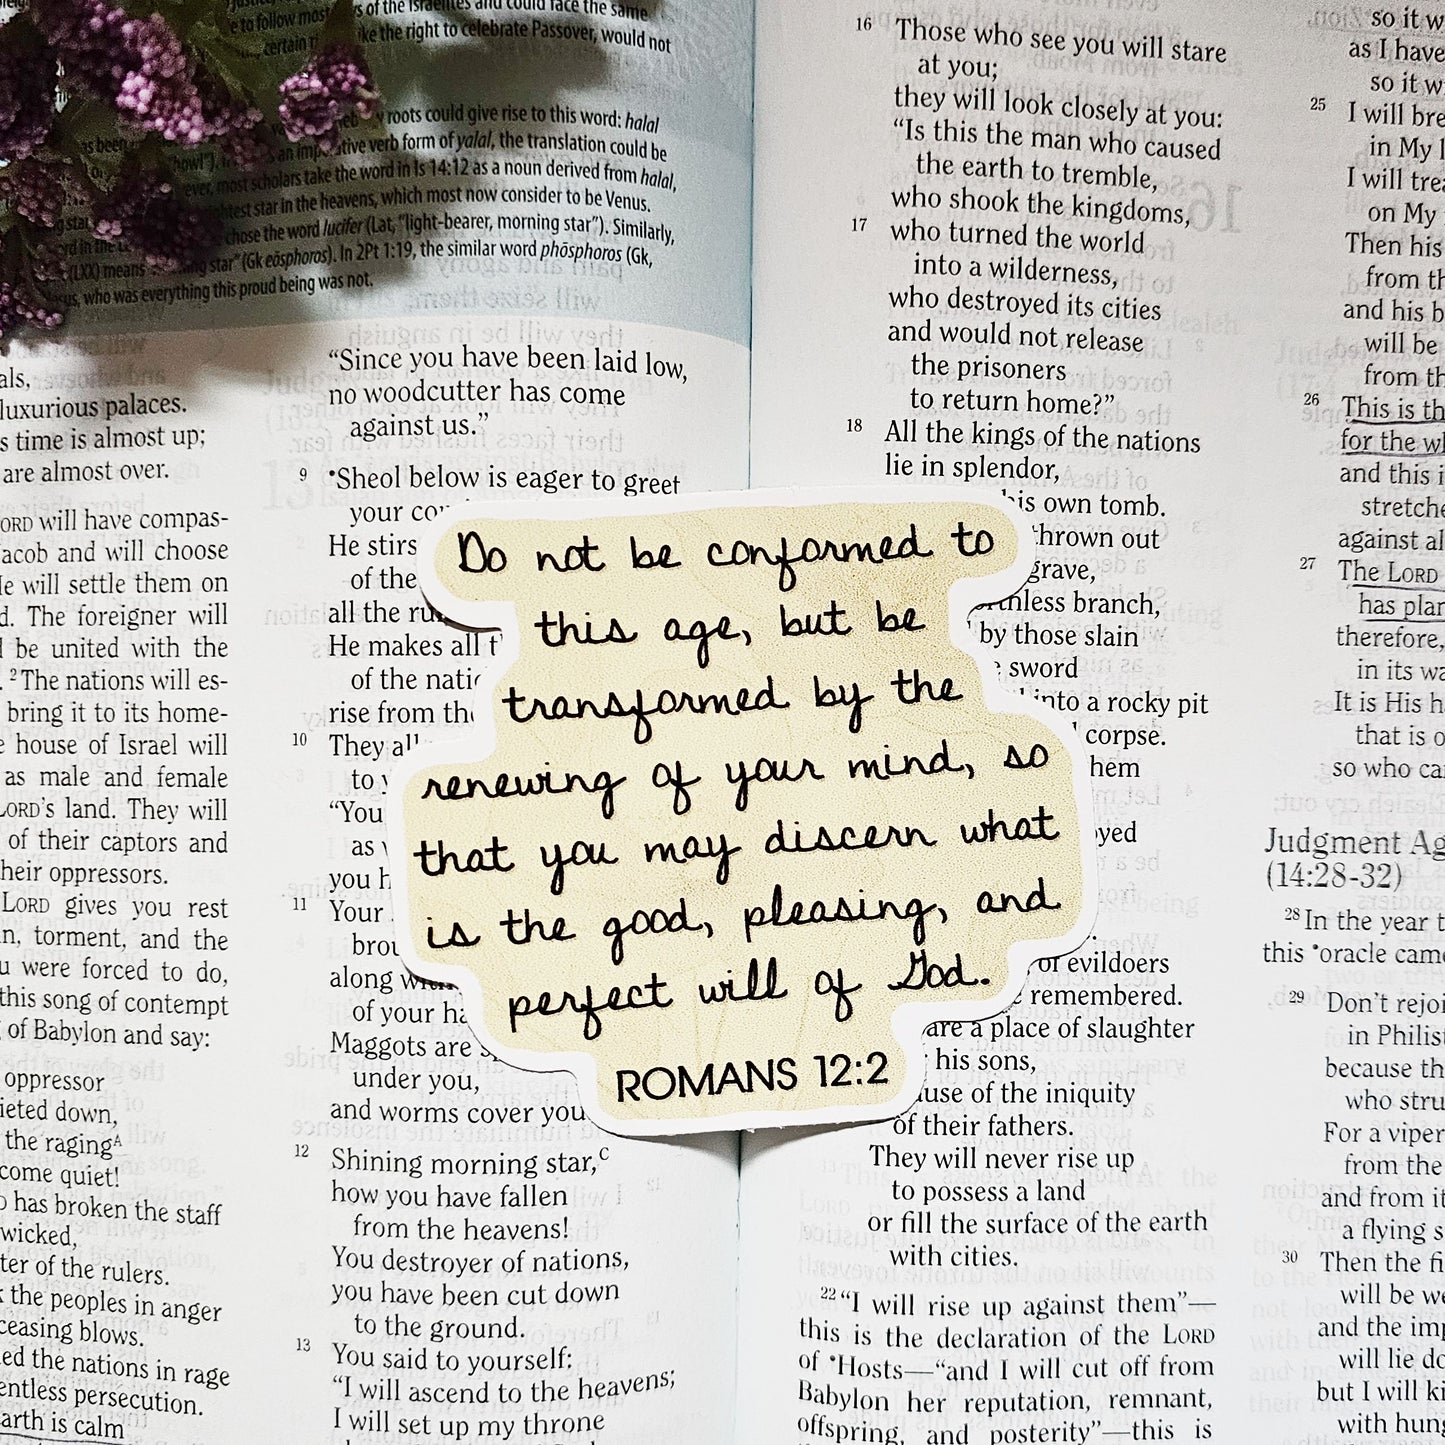 of the Israelites and could face the same
e to follow most
certain
ke the right to celebrate Passover, would not
roots could give rise to this word: halal
an imperative verb form of yalal, the translation could be
"howl").
ever, most scholars take the word in Is 14:12 as a noun derived from halal,
ghtest star in the heavens, which most now consider to be Venus.
chose the word lucifer (Lat, "light-bearer, morning star"). Similarly,
(LXX) means
star" (Gk eōsphoros). In 2Pt 1:19, the similar word phōsphoros (Gk,
who was everything this proud being was not.
als,
luxurious palaces.
s time is almost up;
are almost over.
ORD will have compas-
acob and will choose
He will settle them on
d. The foreigner will
be united with the
. 2 The nations will es-
bring it to its home-
e house of Israel will
as male and female
LORD'S land. They will
of their captors and
heir oppressors.
LORD gives you rest
n, torment, and the
u were forced to do,
this song of contempt
of Babylon and say:
oppressor
ieted down,
the raging A
come quiet!
D has broken the staff
wicked,
ter of the rulers.
k the peoples in anger
ceasing blows.
ed the nations in rage
entless persecution.
arth is calm
"Since you have been laid low,
no woodcutter has come
against us."
9 •Sheol below is eager to greet
your co
He stirs
of the
all the ru
He makes all t
of the natio
rise from the
10 They all
to y
"You
as
you h
11 Your
brou
along with
of your ha
Maggots are s
under you,
and worms cover you
12 Shining morning star, C
how you have fallen
from the heavens!
You destroyer of nations,
you have been cut down
to the ground.
13 You said to yourself:
"I will ascend to the heavens;
I will set up my throne
Do not be conformed to
this age, but be
transformed by the
renewing of your mind, so
that you may discern what
is the good, pleasing, and
perfect will of God.
ROMANS 12:2
16 Those who see you will stare
at you;
they will look closely at you:
"Is this the man who caused
the earth to tremble,
who shook the kingdoms,
17 who turned the world
into a wilderness,
who destroyed its cities
and would not release
the prisoners
to return home?"
18 All the kings of the nations
lie in splendor,
his own tomb.
thrown out
grave,
rthless branch,
by those slain
sword
into a rocky pit
corpse.
hem
oyed
of evildoers
remembered.
are a place of slaughter
his sons,
ause of the iniquity
of their fathers.
They will never rise up
to possess a land
or fill the surface of the earth
with cities.
22 "I will rise up against them"—
this is the declaration of the LORD
of •Hosts—"and I will cut off from
Babylon her reputation, remnant,
offspring, and posterity"—this is
so it w
as I have
so it w
25 I will bre
in My l
I will trea
on My
Then his
from th
and his b
will be
from th
26 This is th
for the wh
and this i
stretche
against al
27 The LORD
has plan
therefore,
in its wa
It is His h
that is o
so who ca
Judgment Ag
(14:28-32)
28 In the year t
this •oracle came
29 Don't rejoi
in Philist
because th
who stru
For a viper
from the
and from it
a flying s
30 Then the fi
will be we
and the imp
will lie do
but I will ki
with hung